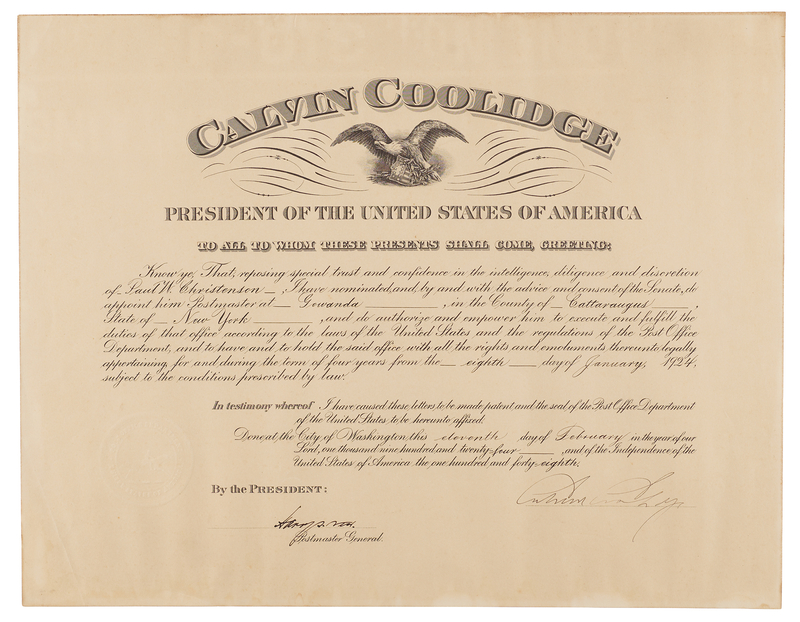 CALVIN COOLIDGE
PRESIDENT OF THE UNITED STATES OF AMERICA
TO ALL TO WHOM THESE PRESENTS SHALL COME, GREETING:
Know ye, That, reposing special trust and confidence in the intelligence, diligence and discretion
of Paul W. Christensen, I have nominated, and, by and with the advice and consent of the Senate, do
appoint him Postmaster at Gowanda, in the County of Cattaraugus,
State of New York, and do authorize and empower him to execute and fulfill the
duties of that office according to the laws of the United States and the regulations of the Post Office
Department, and to have and to hold the said office, with all the rights and emoluments thereunto legally
appertaining, for and during the term of four years from the eighth day of January, 1924,
subject to the conditions prescribed by law.
In testimony whereof I have caused these letters to be made patent, and the seal of the Post Office Department
of the United States, to be hereunto affixed.
Done at the City of Washington this eleventh day of February in the year of our
Lord, one thousand nine hundred and twenty-four, and of the Independence of the
United States of America the one hundred and forty-eighth.
By the PRESIDENT:
Postmaster General.